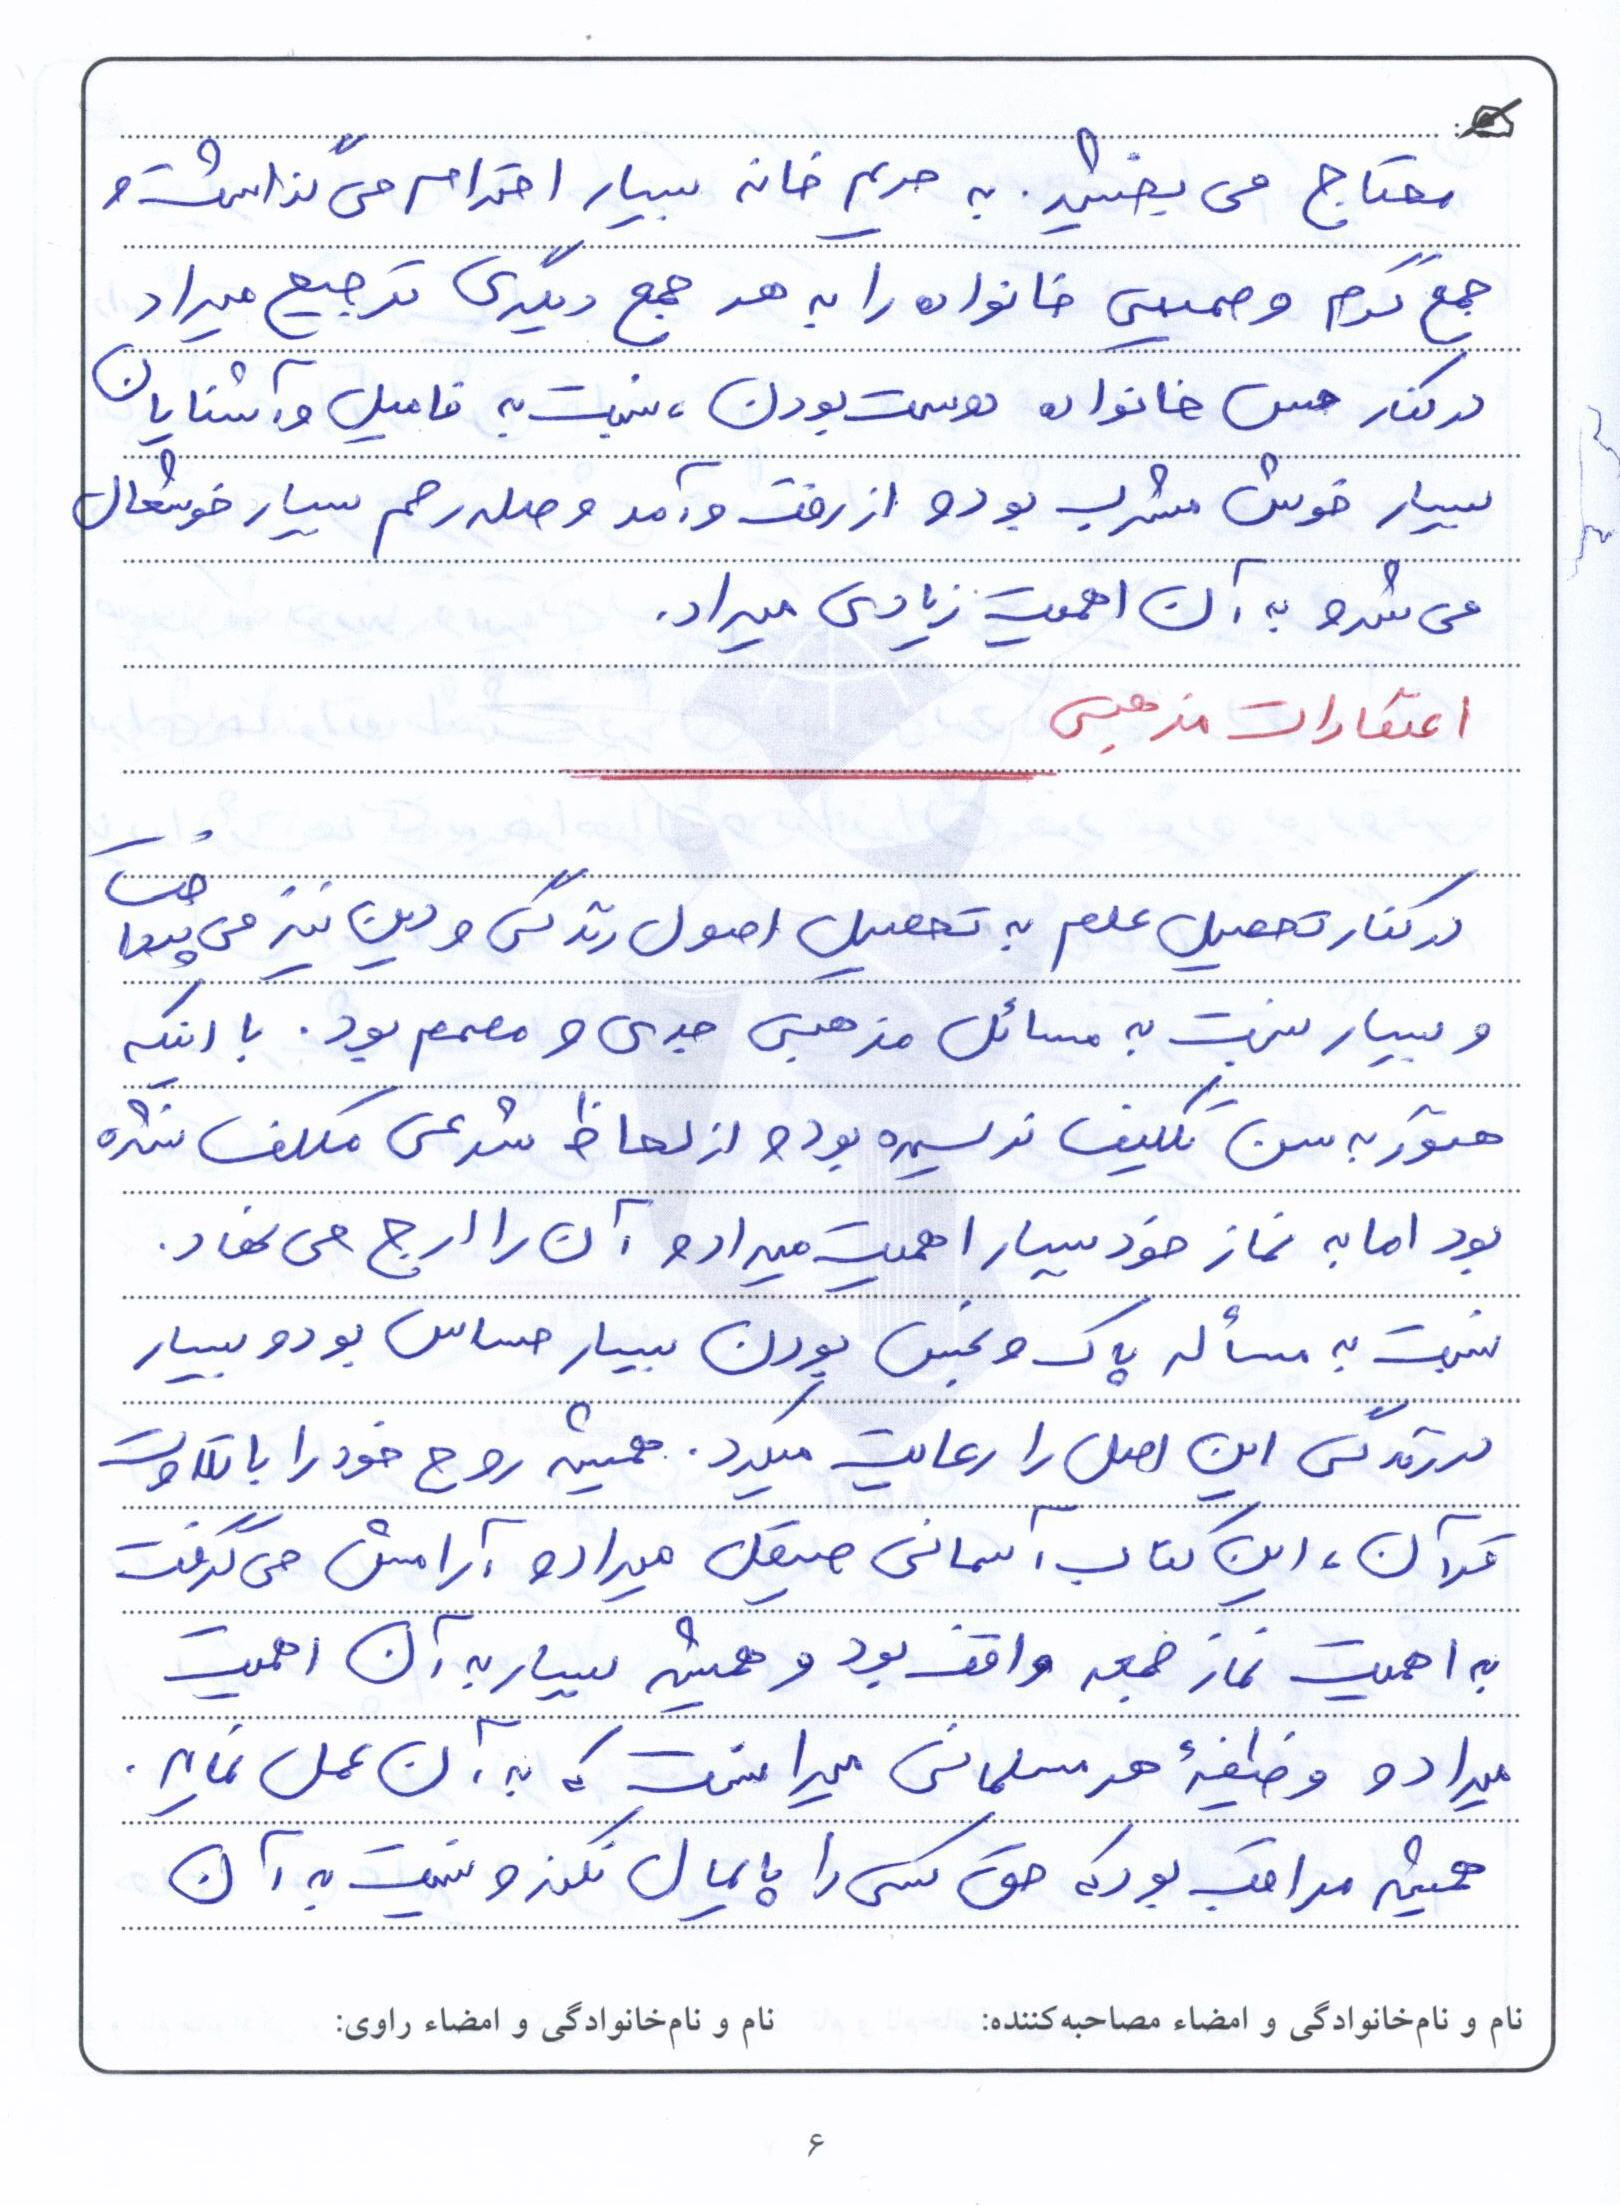 محتاج می بخشید. به حریم خانه بسیار احترام می گذاشت و
جمع گرم و صمیمی خانواده را به هر جمع دیگری ترجیح میداد
در کنار حس خانواده دوست بودن، نسبت به فامیل و آشنایان
بسیار خوش مشرب بود و از رفت و آمد و صله رحم بسیار خوشحال
می شد و به آن اهمیت زیادی میداد.
اعتقادات مذهبی
در کنار تحصیل علم به تحصیل اصول زندگی و دین نیز می پرداخت
و بسیار نسبت به مسائل مذهبی جدی و مصمم بود. با اینکه
هنوز به سن تکلیف نرسیده بود و از لحاظ شرعی مکلف نشده
بود اما به نماز خود بسیار اهمیت میداد و آن را ارج می نهاد.
نسبت به مسأله پاک و نجس بودن بسیار حساس بود و بسیار
در زندگی این اصل را رعایت میکرد. همیشه روح خود را با تلاوت
قرآن، این کتاب آسمانی صیقل میداد و آرامش می گرفت
به اهمیت نماز جمعه واقف بود و همیشه بسیار به آن اهمیت
میداد و وظیفهٔ هر مسلمانی میدانست که به آن عمل نماید.
همیشه مراقب بود که حق کسی را پایمال نکند و نسبت به آن
نام و نام‌خانوادگی و امضاء مصاحبه‌کننده: نام و نام‌خانوادگی و امضاء راوی:
۶